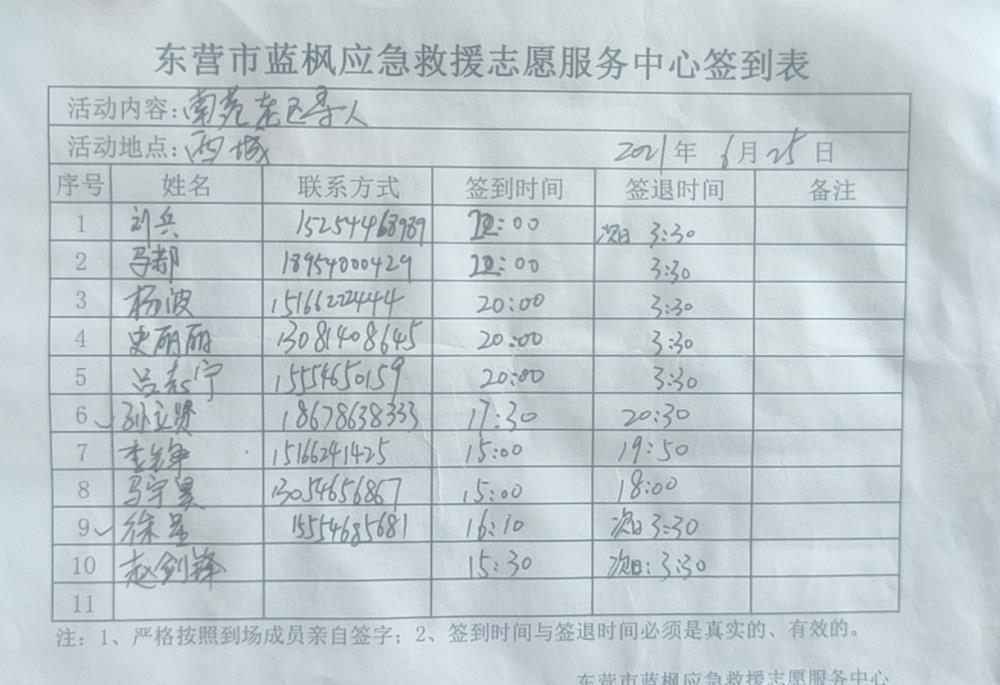 东营市蓝枫应急救援志愿服务中心签到表
活动内容:南苑东区寻人
活动地点:西城 2021年 6月25日
序号 姓名 联系方式 签到时间 签退时间 备注
1 刘兵 15254468989 :00 次日 3:30
2 马 18954000429 :00 3:30
3 杨波 15166222444 20:00 3:30
4 史丽丽 13081408645 20:00 3:30
5 吕志宁 15554650159 20:00 3:30
6 孙立贤 18678638333 17:30 20:30
7 李先争 15166241425 15:00 19:50
8 马宇昊 13054656867 15:00 18:00
9 徐 15554685681 16:10 次日3:30
10 赵剑锋 15:30 次日:3:30
11
注:1、严格按照到场成员亲自签字;2、签到时间与签退时间必须是真实的、有效的。
东营市蓝枫应急救援志愿服务中心